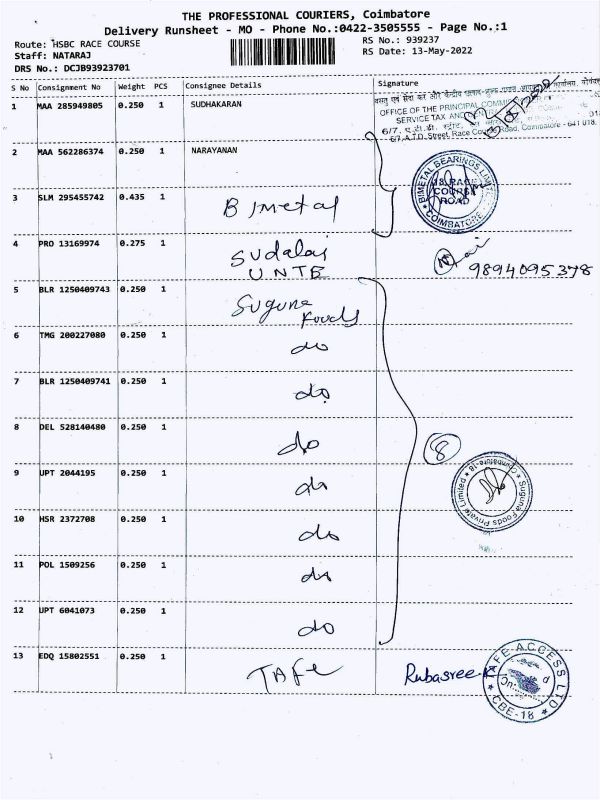 THE PROFESSIONAL COURIERS, Coimbatore
Delivery Runsheet - MO - Phone No.:0422-3505555 - Page No.:1
Route: HSBC RACE COURSE
Staff: NATARAJ
DRS No.: DCJB93923701
RS No.: 939237
RS Date: 13-May-2022
S No Consignment No Weight PCS Consignee Details Signature
1 MAA 285949805 0.250 1 SUDHAKARAN
OFFICE OF THE PRINCIPAL
SERVICE TAX AND
Street, Race Course Road, Coimbatore - 641 018.
2 MAA 562286374 0.250 1 NARAYANAN
BIMETAL BEARINGS LIMITED
18, RACE
COURSE
ROAD
COIMBATORE
3 SLM 295455742 0.435 1 Bimetal
4 PRO 13169974 0.275 1 Sudalai
UNTB
9894095378
5 BLR 1250409743 0.250 1 Suguna
Foods
6 TMG 200227080 0.250 1 do
7 BLR 1250409741 0.250 1 do
8 DEL 528140480 0.250 1 do
8
9 UPT 2044195 0.250 1 do
Suguna Foods Private Limited * Coimbatore 18 *
10 HSR 2372708 0.250 1 do
11 POL 1509256 0.250 1 do
12 UPT 6041073 0.250 1 do
13 EDQ 15802551 0.250 1 TAFE
Rubasree
TAFE ACCESS LTD
* CBE-18 *